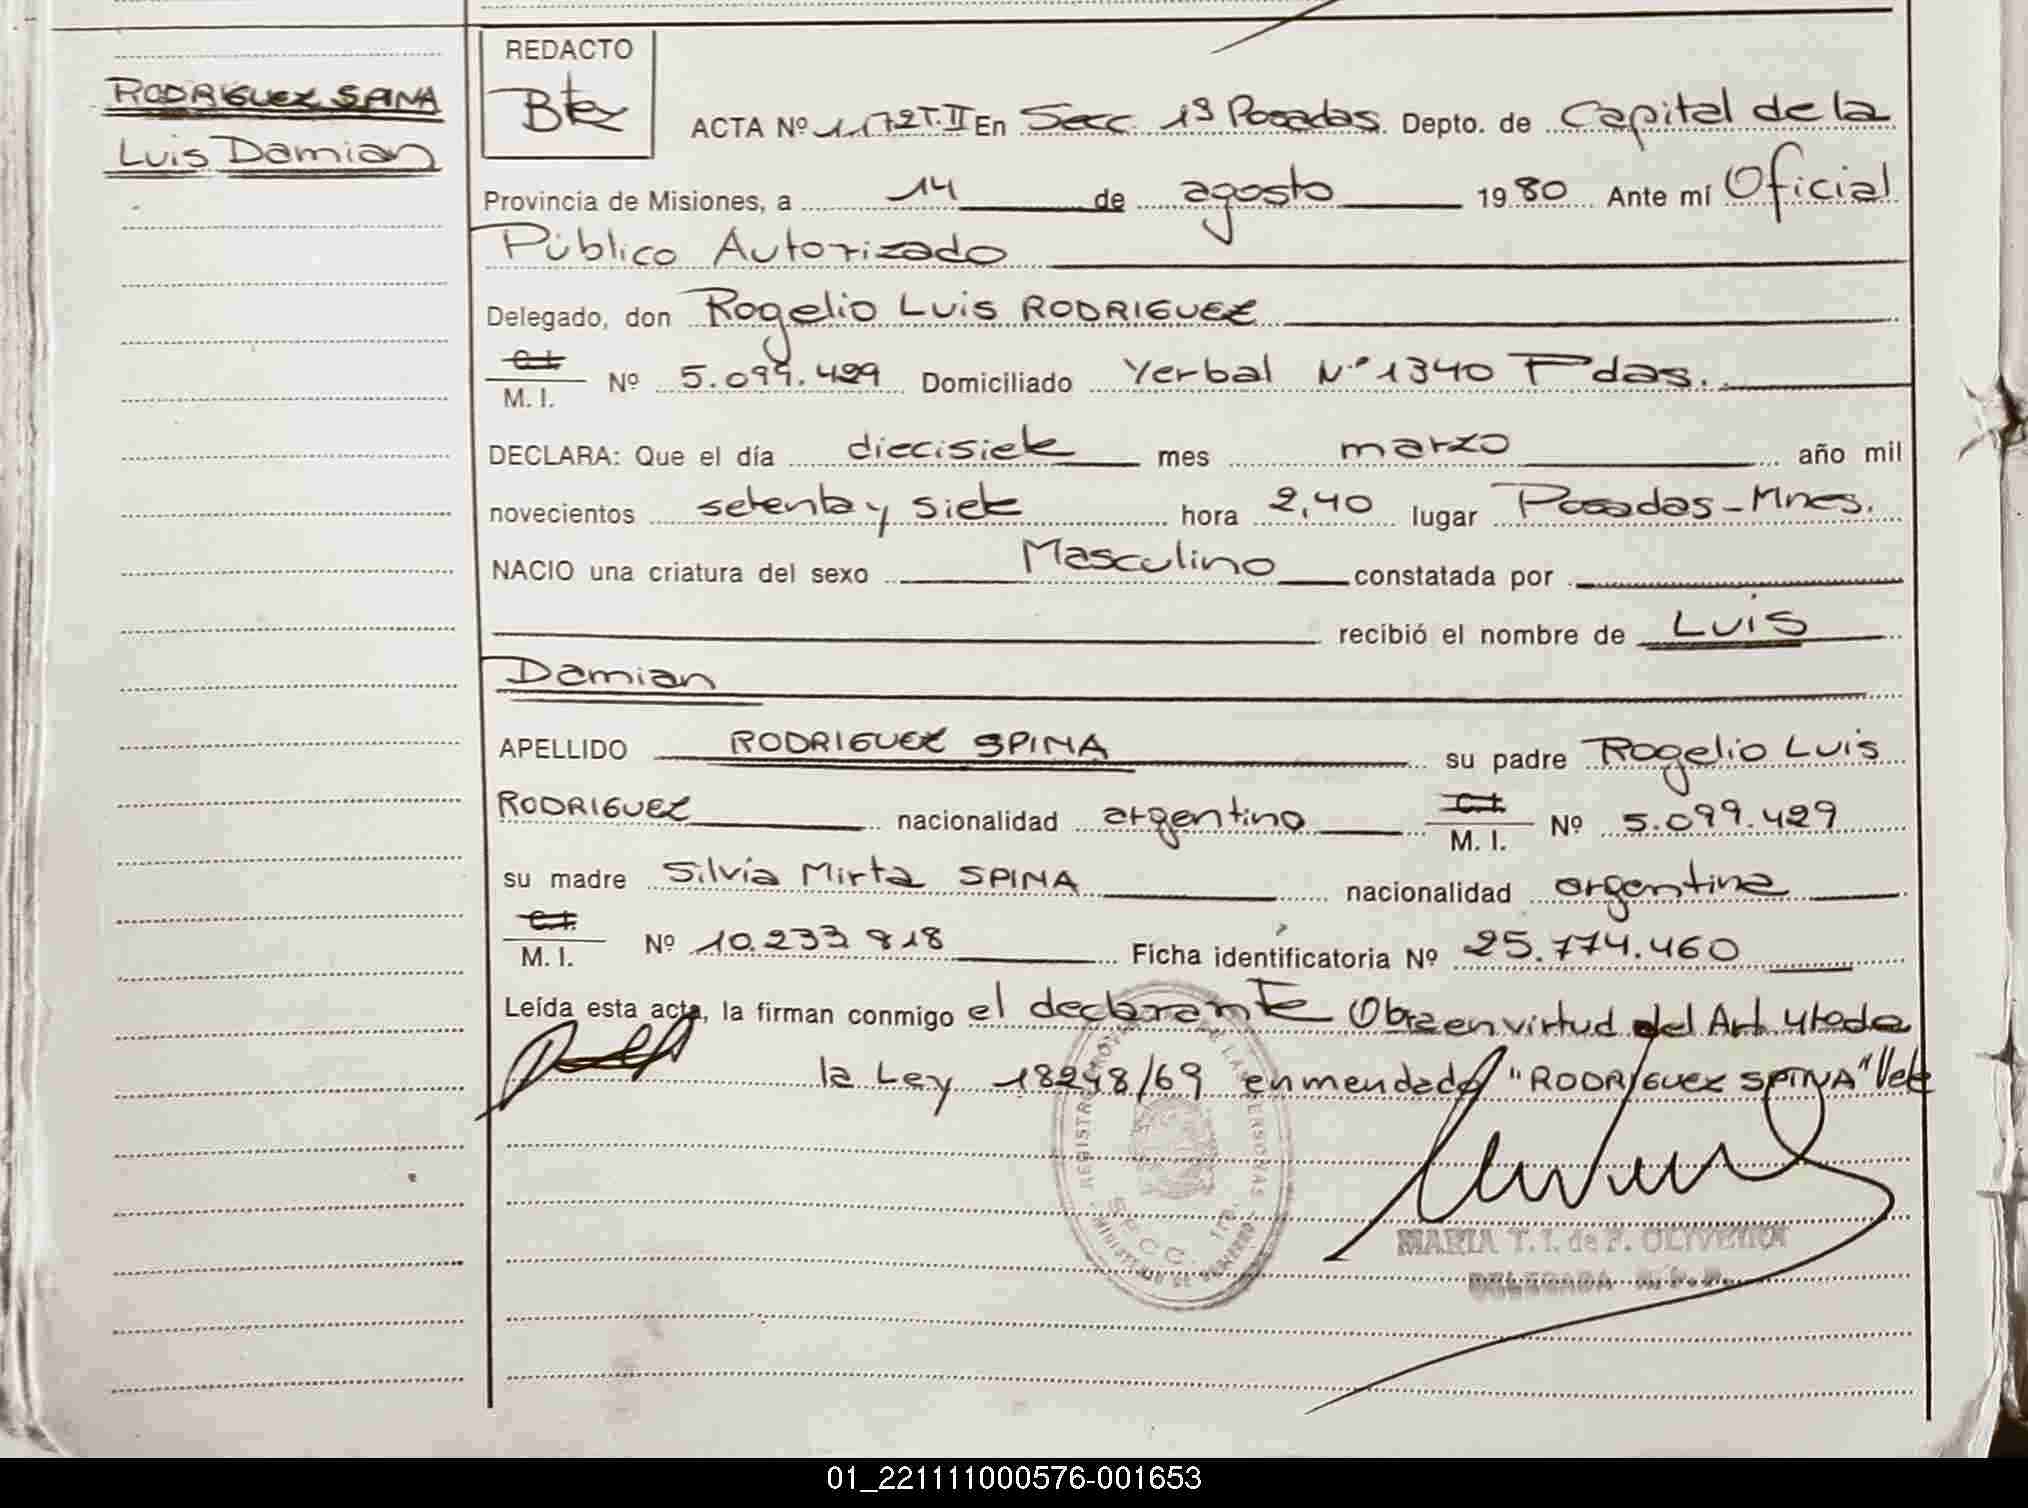 RODRIGUEZ SPINA
Luis Damian
REDACTO
ACTA Nº 1.172 T. II En Secc. 1ª Posadas Depto. de Capital de la
Provincia de Misiones, a 14 de agosto 1980 Ante mí Oficial
Público Autorizado
Delegado, don Rogelio Luis RODRIGUEZ
C.I.
M. I. Nº 5.099.429 Domiciliado Yerbal Nº 1340 Pdas.
DECLARA: Que el día diecisiete mes marzo año mil
novecientos setenta y siete hora 2,40 lugar Posadas-Mnes.
NACIO una criatura del sexo Masculino constatada por
recibió el nombre de Luis
Damian
APELLIDO RODRIGUEZ SPINA su padre Rogelio Luis
RODRIGUEZ nacionalidad argentino C.I. M. I. Nº 5.099.429
su madre Silvia Mirta SPINA nacionalidad argentina
C.I.
M. I. Nº 10.233.818 Ficha identificatoria Nº 25.774.460
Leída esta acta, la firman conmigo el declarante Obra en virtud del Art 4to de
la Ley 18248/69 enmendado "RODRIGUEZ SPINA" Vale
REGISTRO PROV. DE LAS PERSONAS
SECC. 1ra.
MINISTERIO DE GOBIERNO
MARIA T. I. de F. OLIVEIRA
DELEGADA R. P. P.
01_221111000576-001653